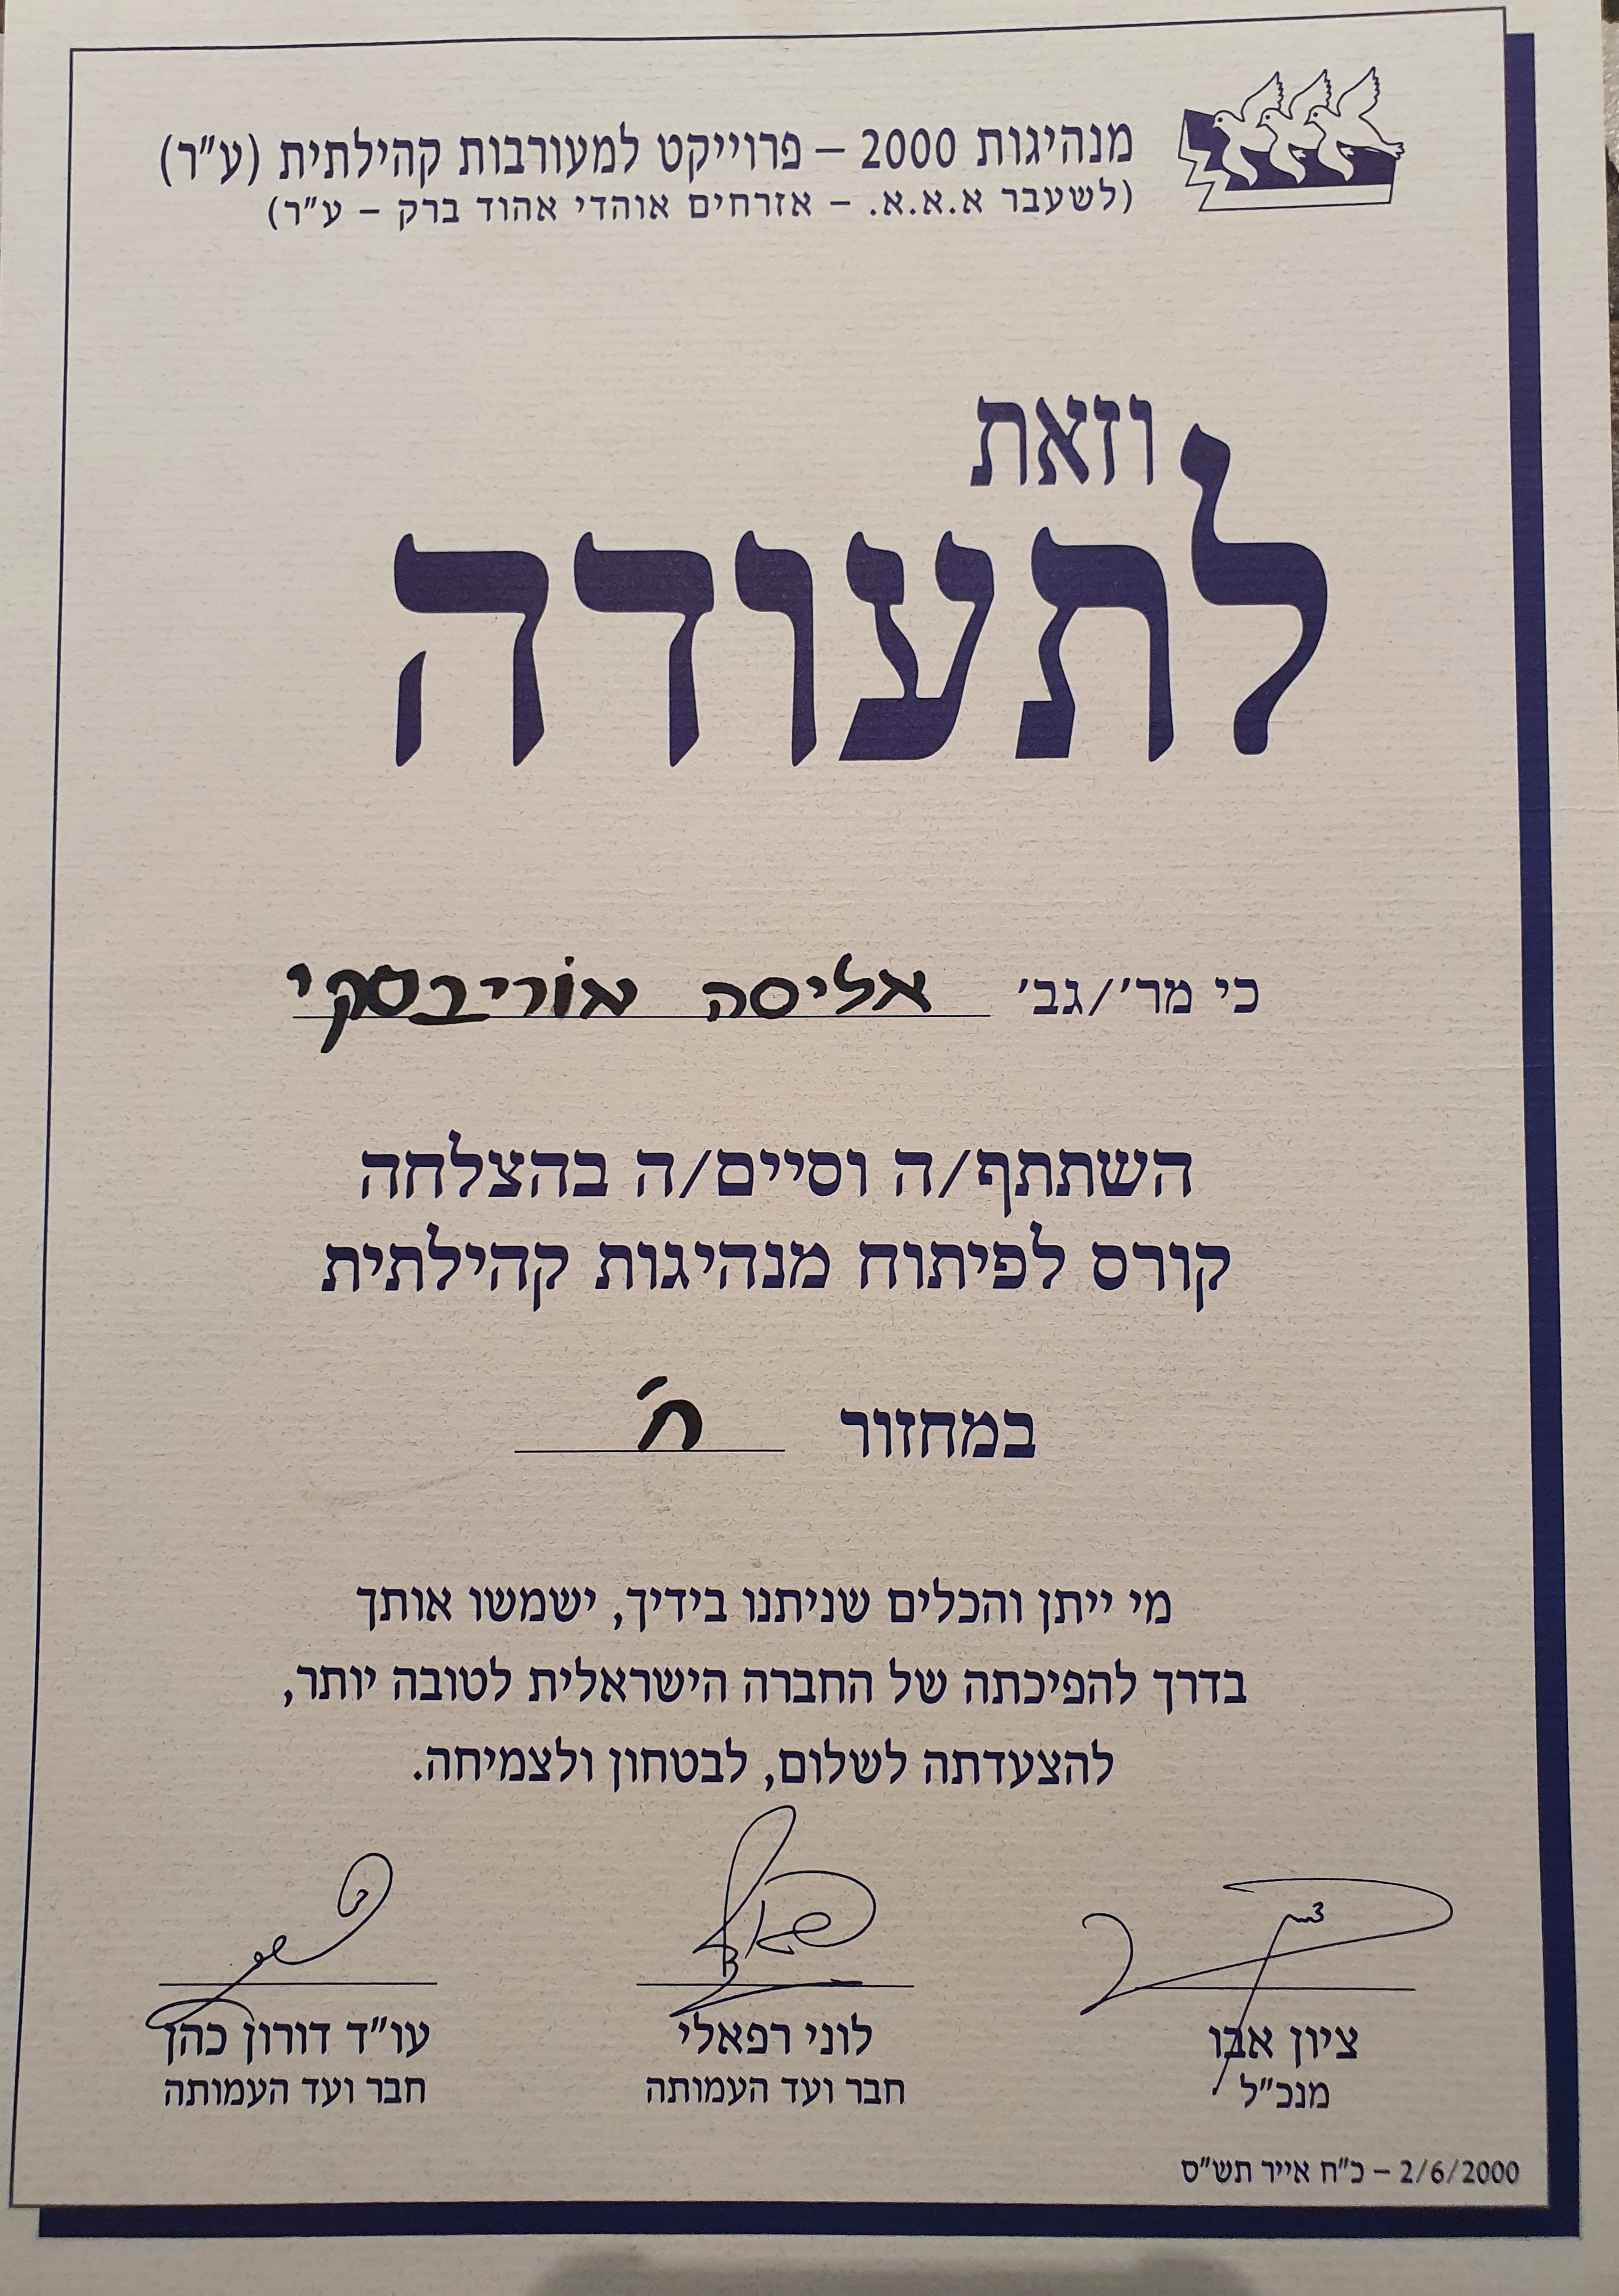 מנהיגות 2000 – פרוייקט למעורבות קהילתית (ע"ר)
(לשעבר א.א.א. – אזרחים אוהדי אהוד ברק – ע"ר)
וזאת
לתעודה
כי מר'/גב' אליסה אוריבסקי
השתתף/ה וסיים/ה בהצלחה
קורס לפיתוח מנהיגות קהילתית
במחזור ח'
מי ייתן והכלים שניתנו בידיך, ישמשו אותך
בדרך להפיכתה של החברה הישראלית לטובה יותר,
להצעדתה לשלום, לבטחון ולצמיחה.
ציון אבו
מנכ"ל
לוני רפאלי
חבר ועד העמותה
עו"ד דורון כהן
חבר ועד העמותה
2/6/2000 – כ"ח אייר תש"ס